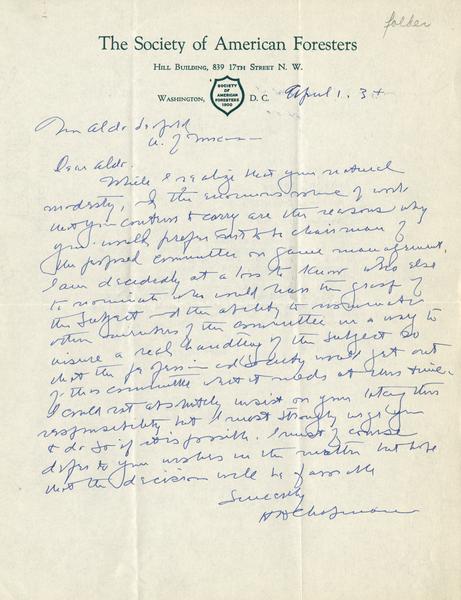 folder
The Society of American Foresters
Hill Building, 839 17th Street N. W.
Washington, D. C.
SOCIETY OF AMERICAN FORESTERS 1900
April 1. 34
Mr Aldo Leopold
U. of
Dear Aldo.
While I realize that your natural
modesty, & the enormous amount of work
that you continue to carry are the reasons why
you would prefer not to be chairman of
the proposed committee on game management,
I am decidedly at a loss to know who else
to nominate who would have the grasp of
the subject and the ability to
other members of the committee in a way to
insure a real handling of the subject so
that the profession and Society would get out
of this committee what it needs at this time.
I could not absolutely insist on your taking this
responsibility but I most strongly urge you
to do so if it is possible. I must of course
defer to your wishes in the matter but hope
that the decision will be favorable
Sincerely
H H Chapman